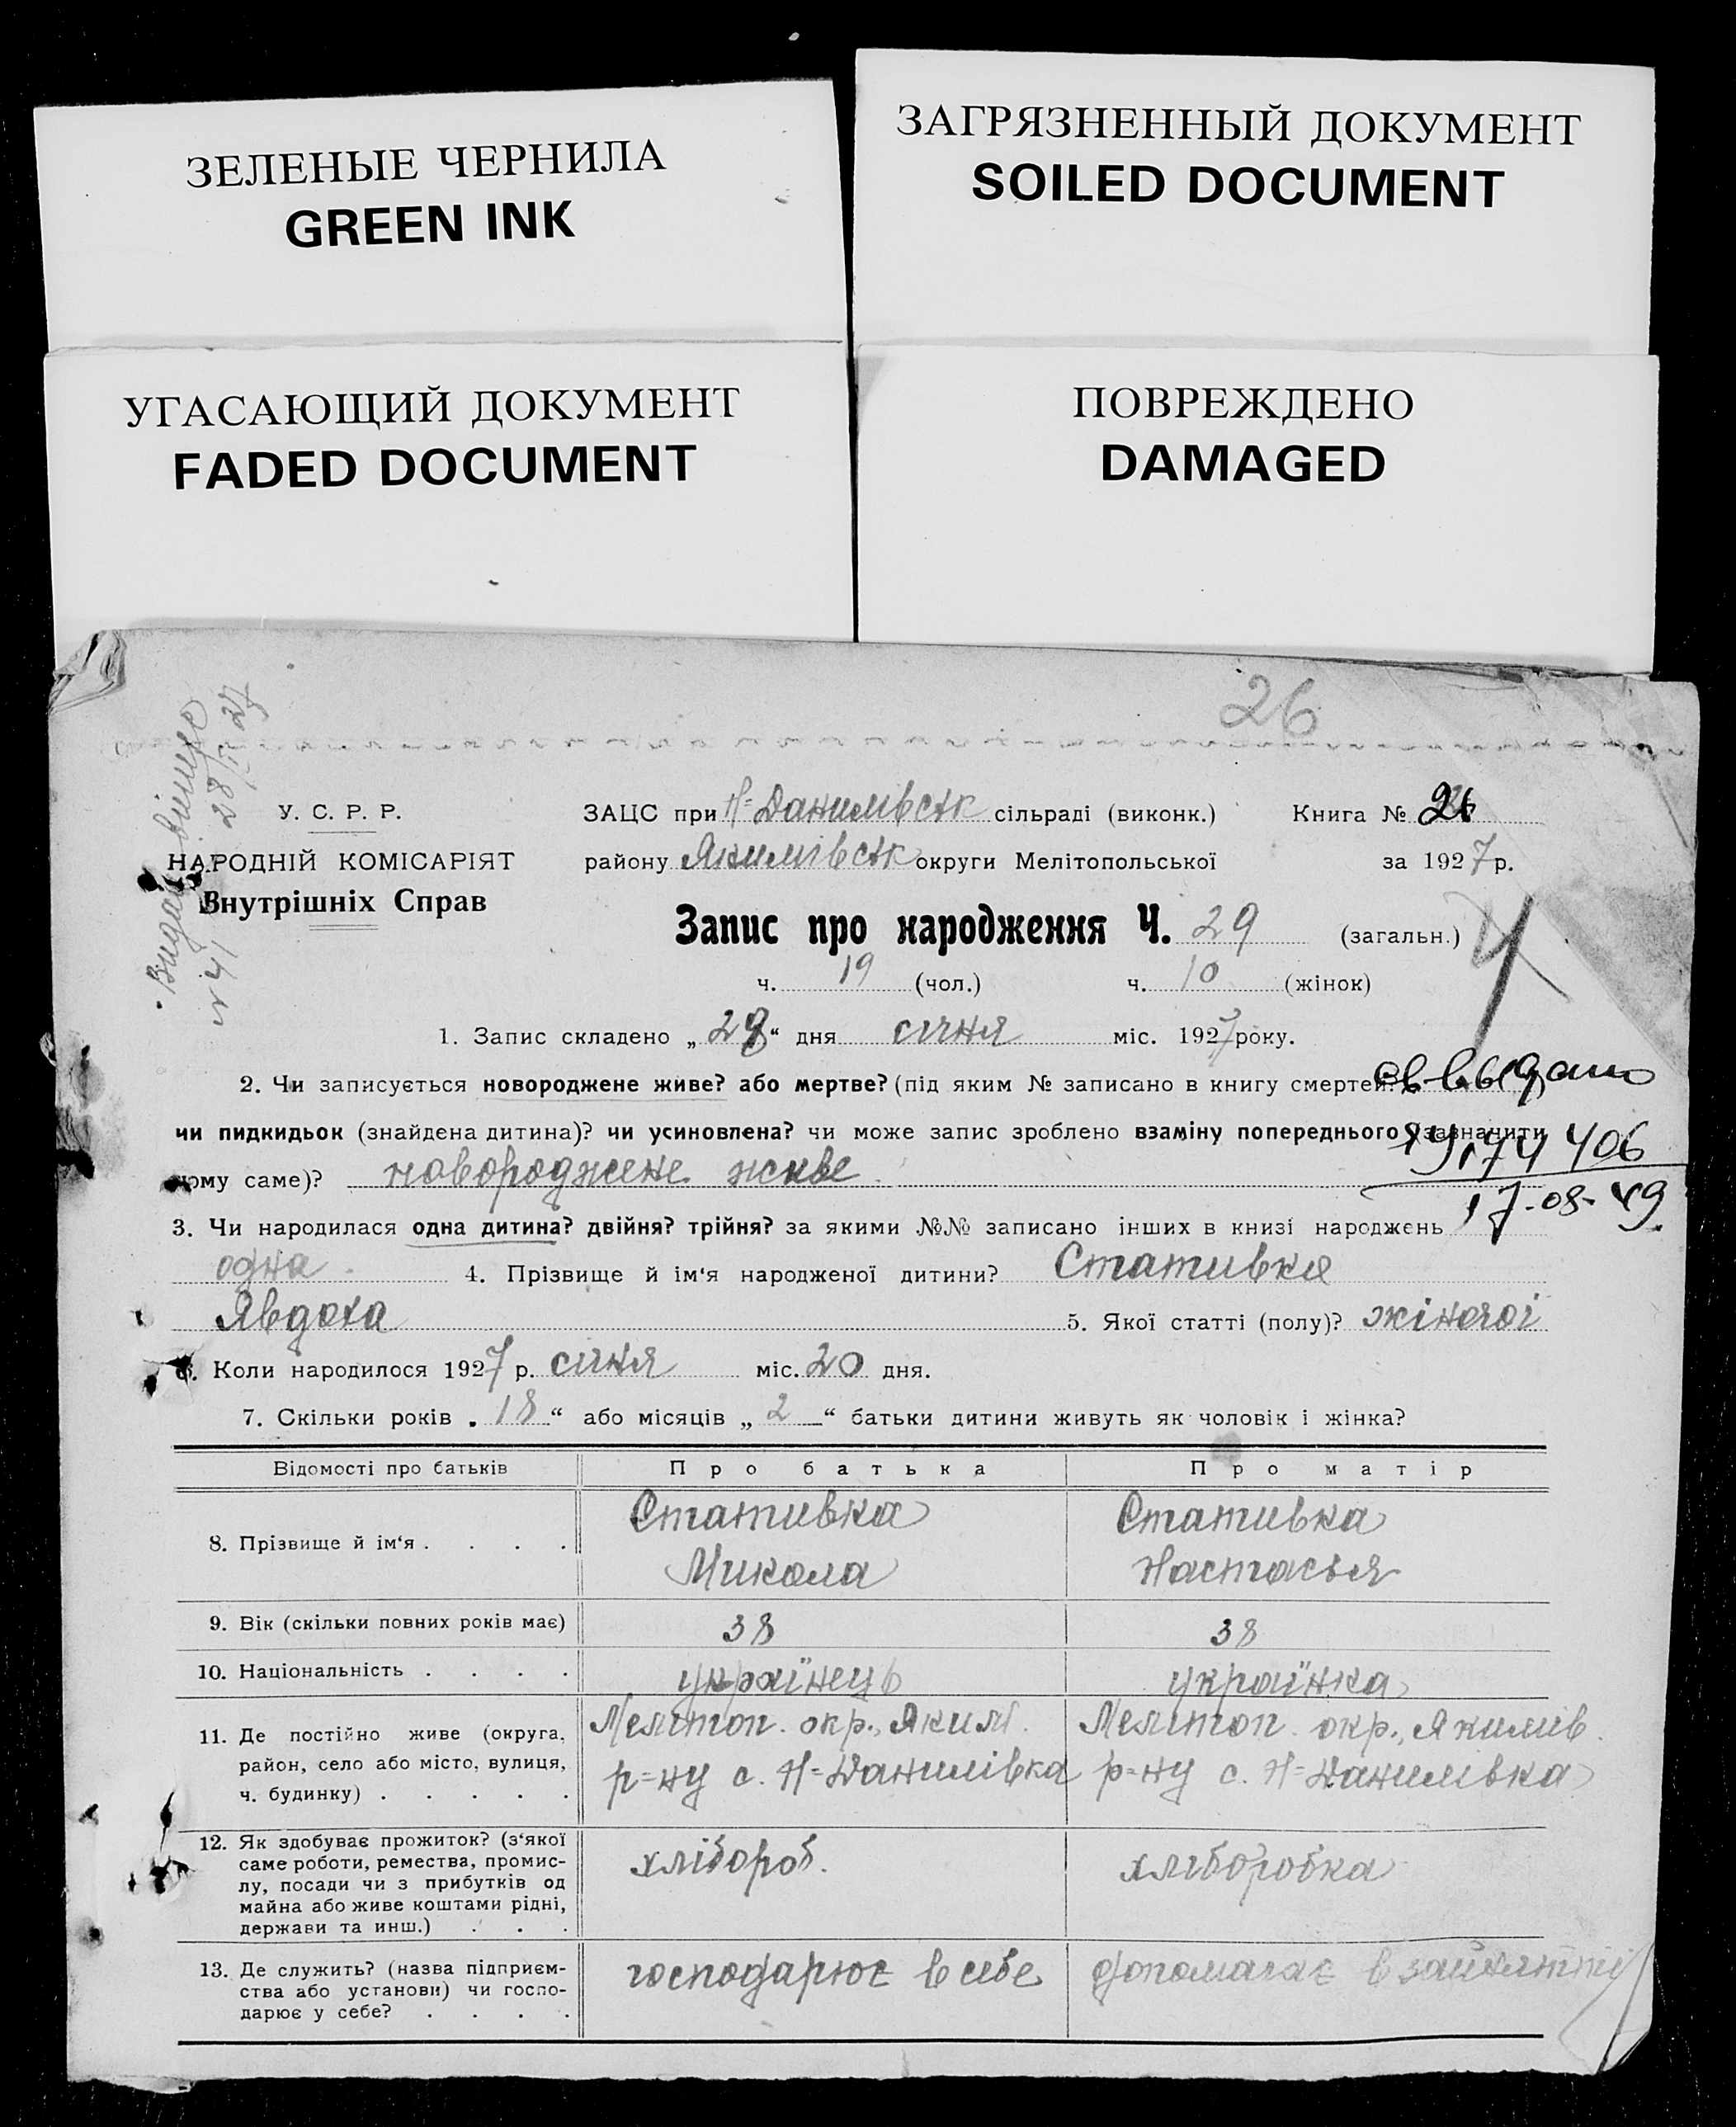 ЗЕЛЕНЫЕ ЧЕРНИЛА
GREEN INK
ЗАГРЯЗНЕННЫЙ ДОКУМЕНТ
SOILED DOCUMENT
УГАСАЮЩИЙ ДОКУМЕНТ
FADED DOCUMENT
ПОВРЕЖДЕНО
DAMAGED
26
У. С. Р. Р.
НАРОДНІЙ КОМІСАРІЯТ
Внутрішніх Справ
ЗАЦС при Н=Данилівськ сільраді (виконк.) Книга № 26
району Якимівськ округи Мелітопольської за 1927 р.
Запис про народження Ч. 29 (загальн.)
ч. 19 (чол.) ч. 10 (жінок)
1. Запис складено „ 28 “ дня січня міс. 1927 року.
2. Чи записується новороджене живе? або мертве? (під яким № записано в книгу смертей?
св. выдано
чи пидкидьок (знайдена дитина)? чи усиновлена? чи може запис зроблено взаміну попереднього (зазначити
чому саме)? новороджене живе
406
17-08-49
3. Чи народилася одна дитина? двійня? трійня? за якими №№ записано інших в книзі народжень
одна. 4. Прізвище й ім'я народженої дитини? Стативка
Явдоха 5. Якої статті (полу)? жіночої
6. Коли народилося 1927 р. січня міс. 20 дня.
7. Скільки років „ 18 “ або місяців „ 2 “ батьки дитини живуть як чоловік і жінка?
Відомості про батьків Про батька Про матір
8. Прізвище й ім'я . . . . Стативка Микола Стативка Настасья
9. Вік (скільки повних років має) 38 38
10. Національність . . . . українець українка
11. Де постійно живе (округа, район, село або місто, вулиця, ч. будинку) . . . . .
Мелітоп. окр., Яким.
р=ну с. Н=Данилівка
Мелітоп. окр., Якимів.
р=ну с. Н=Данилівка
12. Як здобуває прожиток? (з'якої
саме роботи, ремества, промис-
лу, посади чи з прибутків од
майна або живе коштами рідні,
держави та инш.) . . .
хлібороб. хліборобка
13. Де служить? (назва підприєм-
ства або установи) чи госпо-
дарює у себе? . . . .
господарює в себе допомагає в занятті